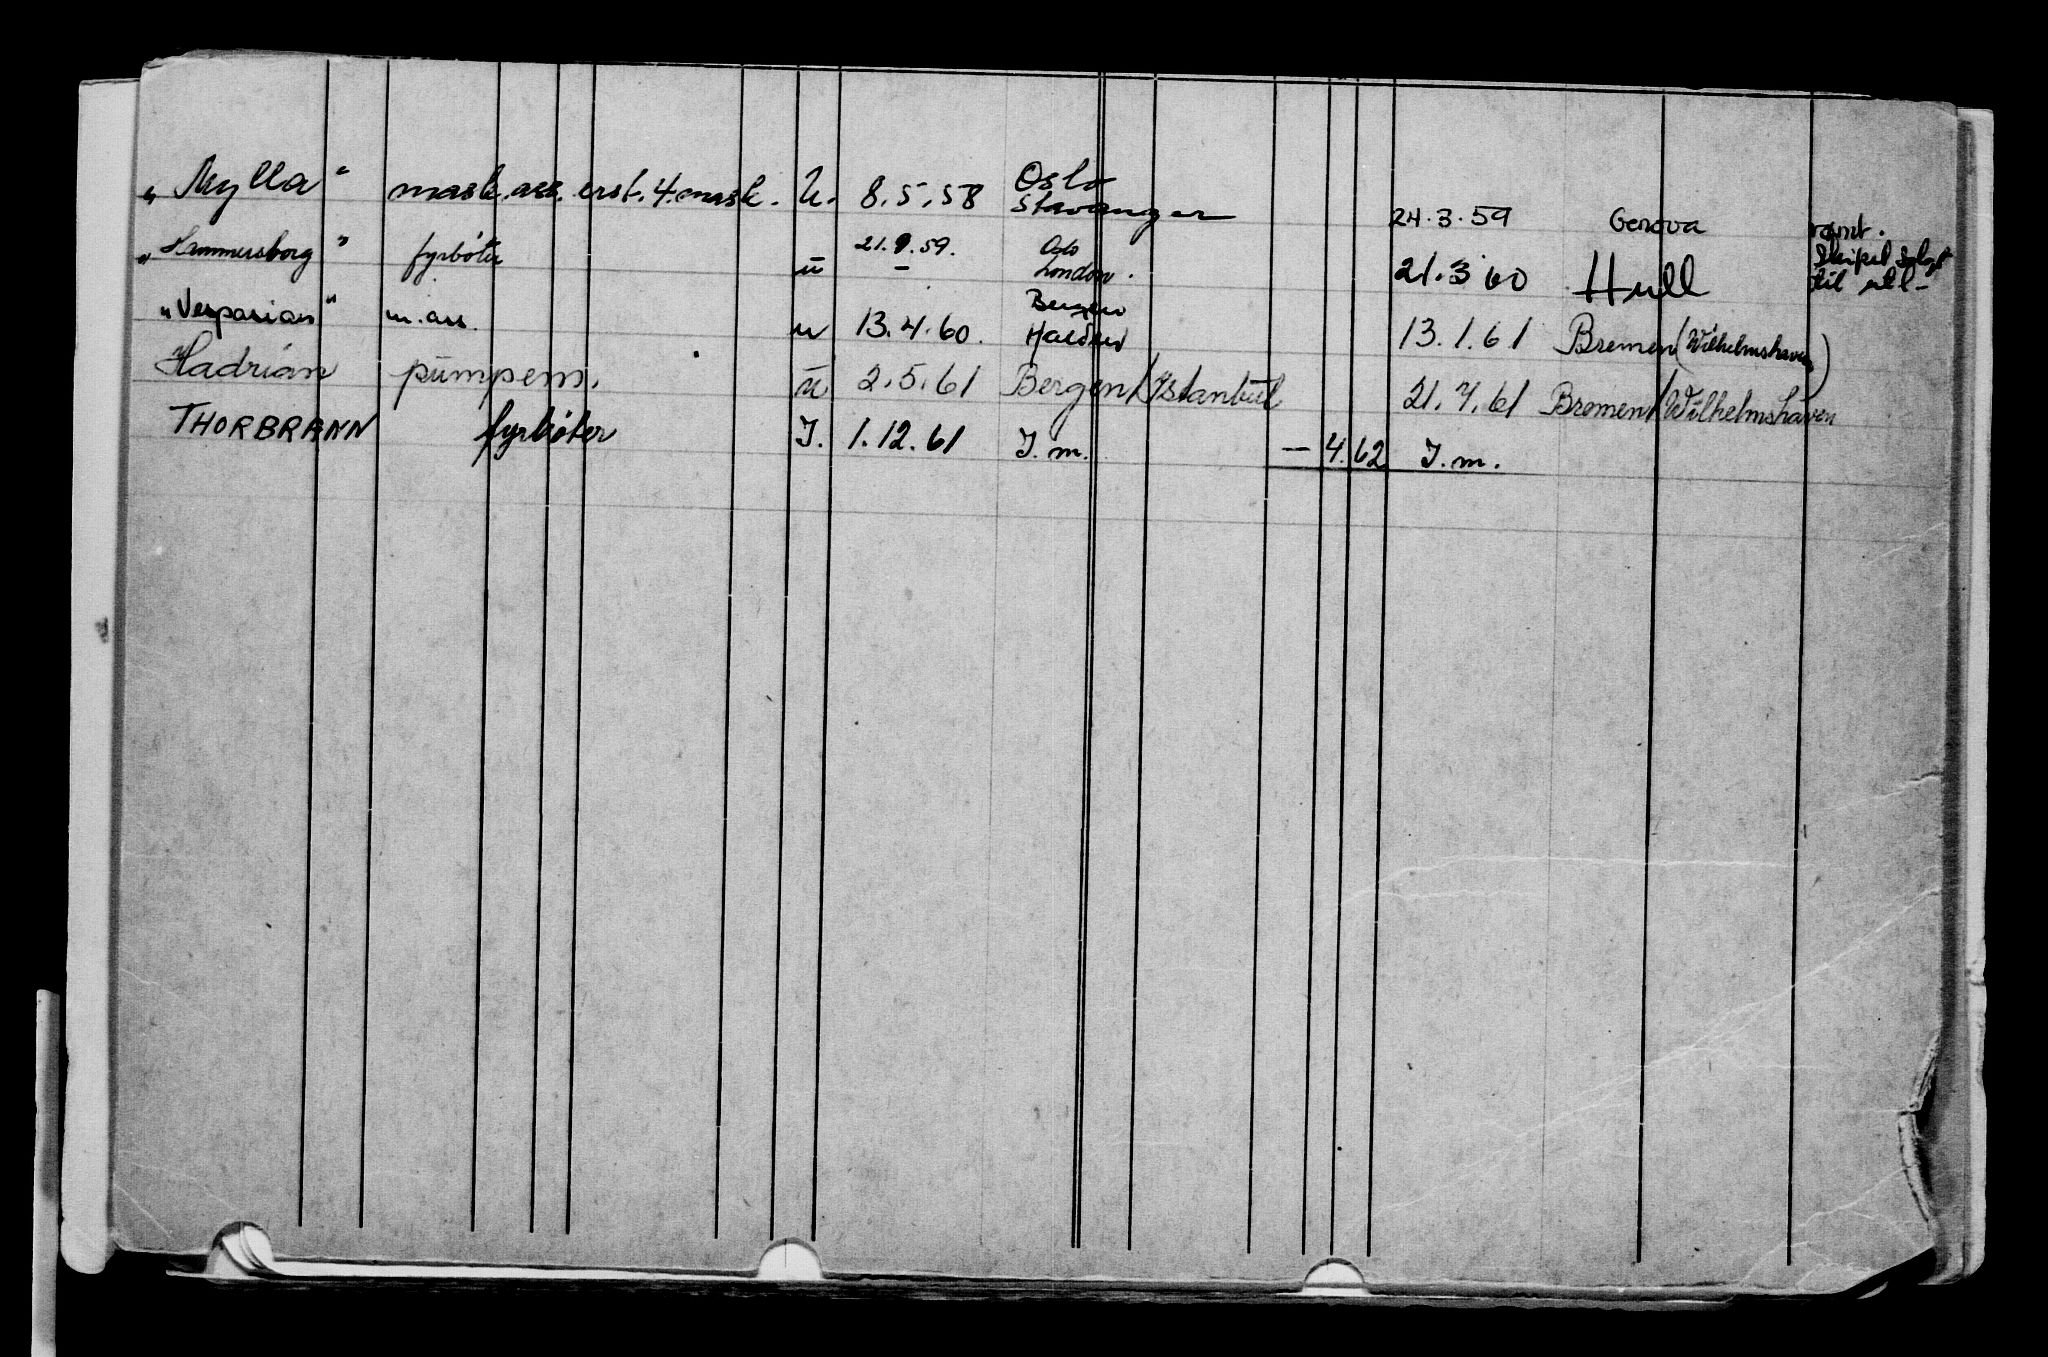 „Mylla“ mask.ass. erst. 4. mask. U. 8.5.58 Oslo Stavanger 24.3.59 Genova
„Hammersborg“ fyrbøter u 21.9.59. Oslo London. 21.3 60 Hull Skipet solgt til utl-
„Vespasian“ m.ass. u 13.4.60. Bergen Halden 13.1.61 Bremen (Wilhelmshaven)
Hadrian pumpem. u 2.5.61 Bergen/Istanbul 21.7.61 Bremen/Wilhelmshaven
THORBRANN fyrbøter I. 1.12.61 I.m. — 4.62 I.m.